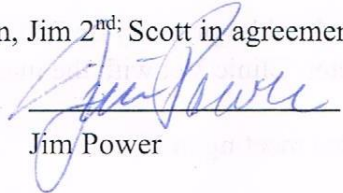 n, Jim 2nd; Scott in agreemen
Jim Power
Jim Power